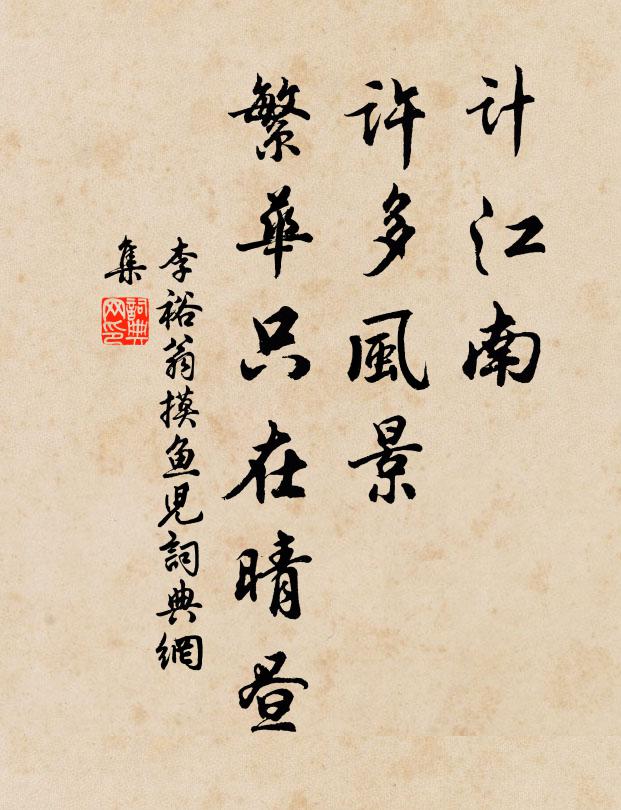 计江南
許多風景
繁華只在晴昼
李裕翁摸鱼児詞典網
集
詞典
网印